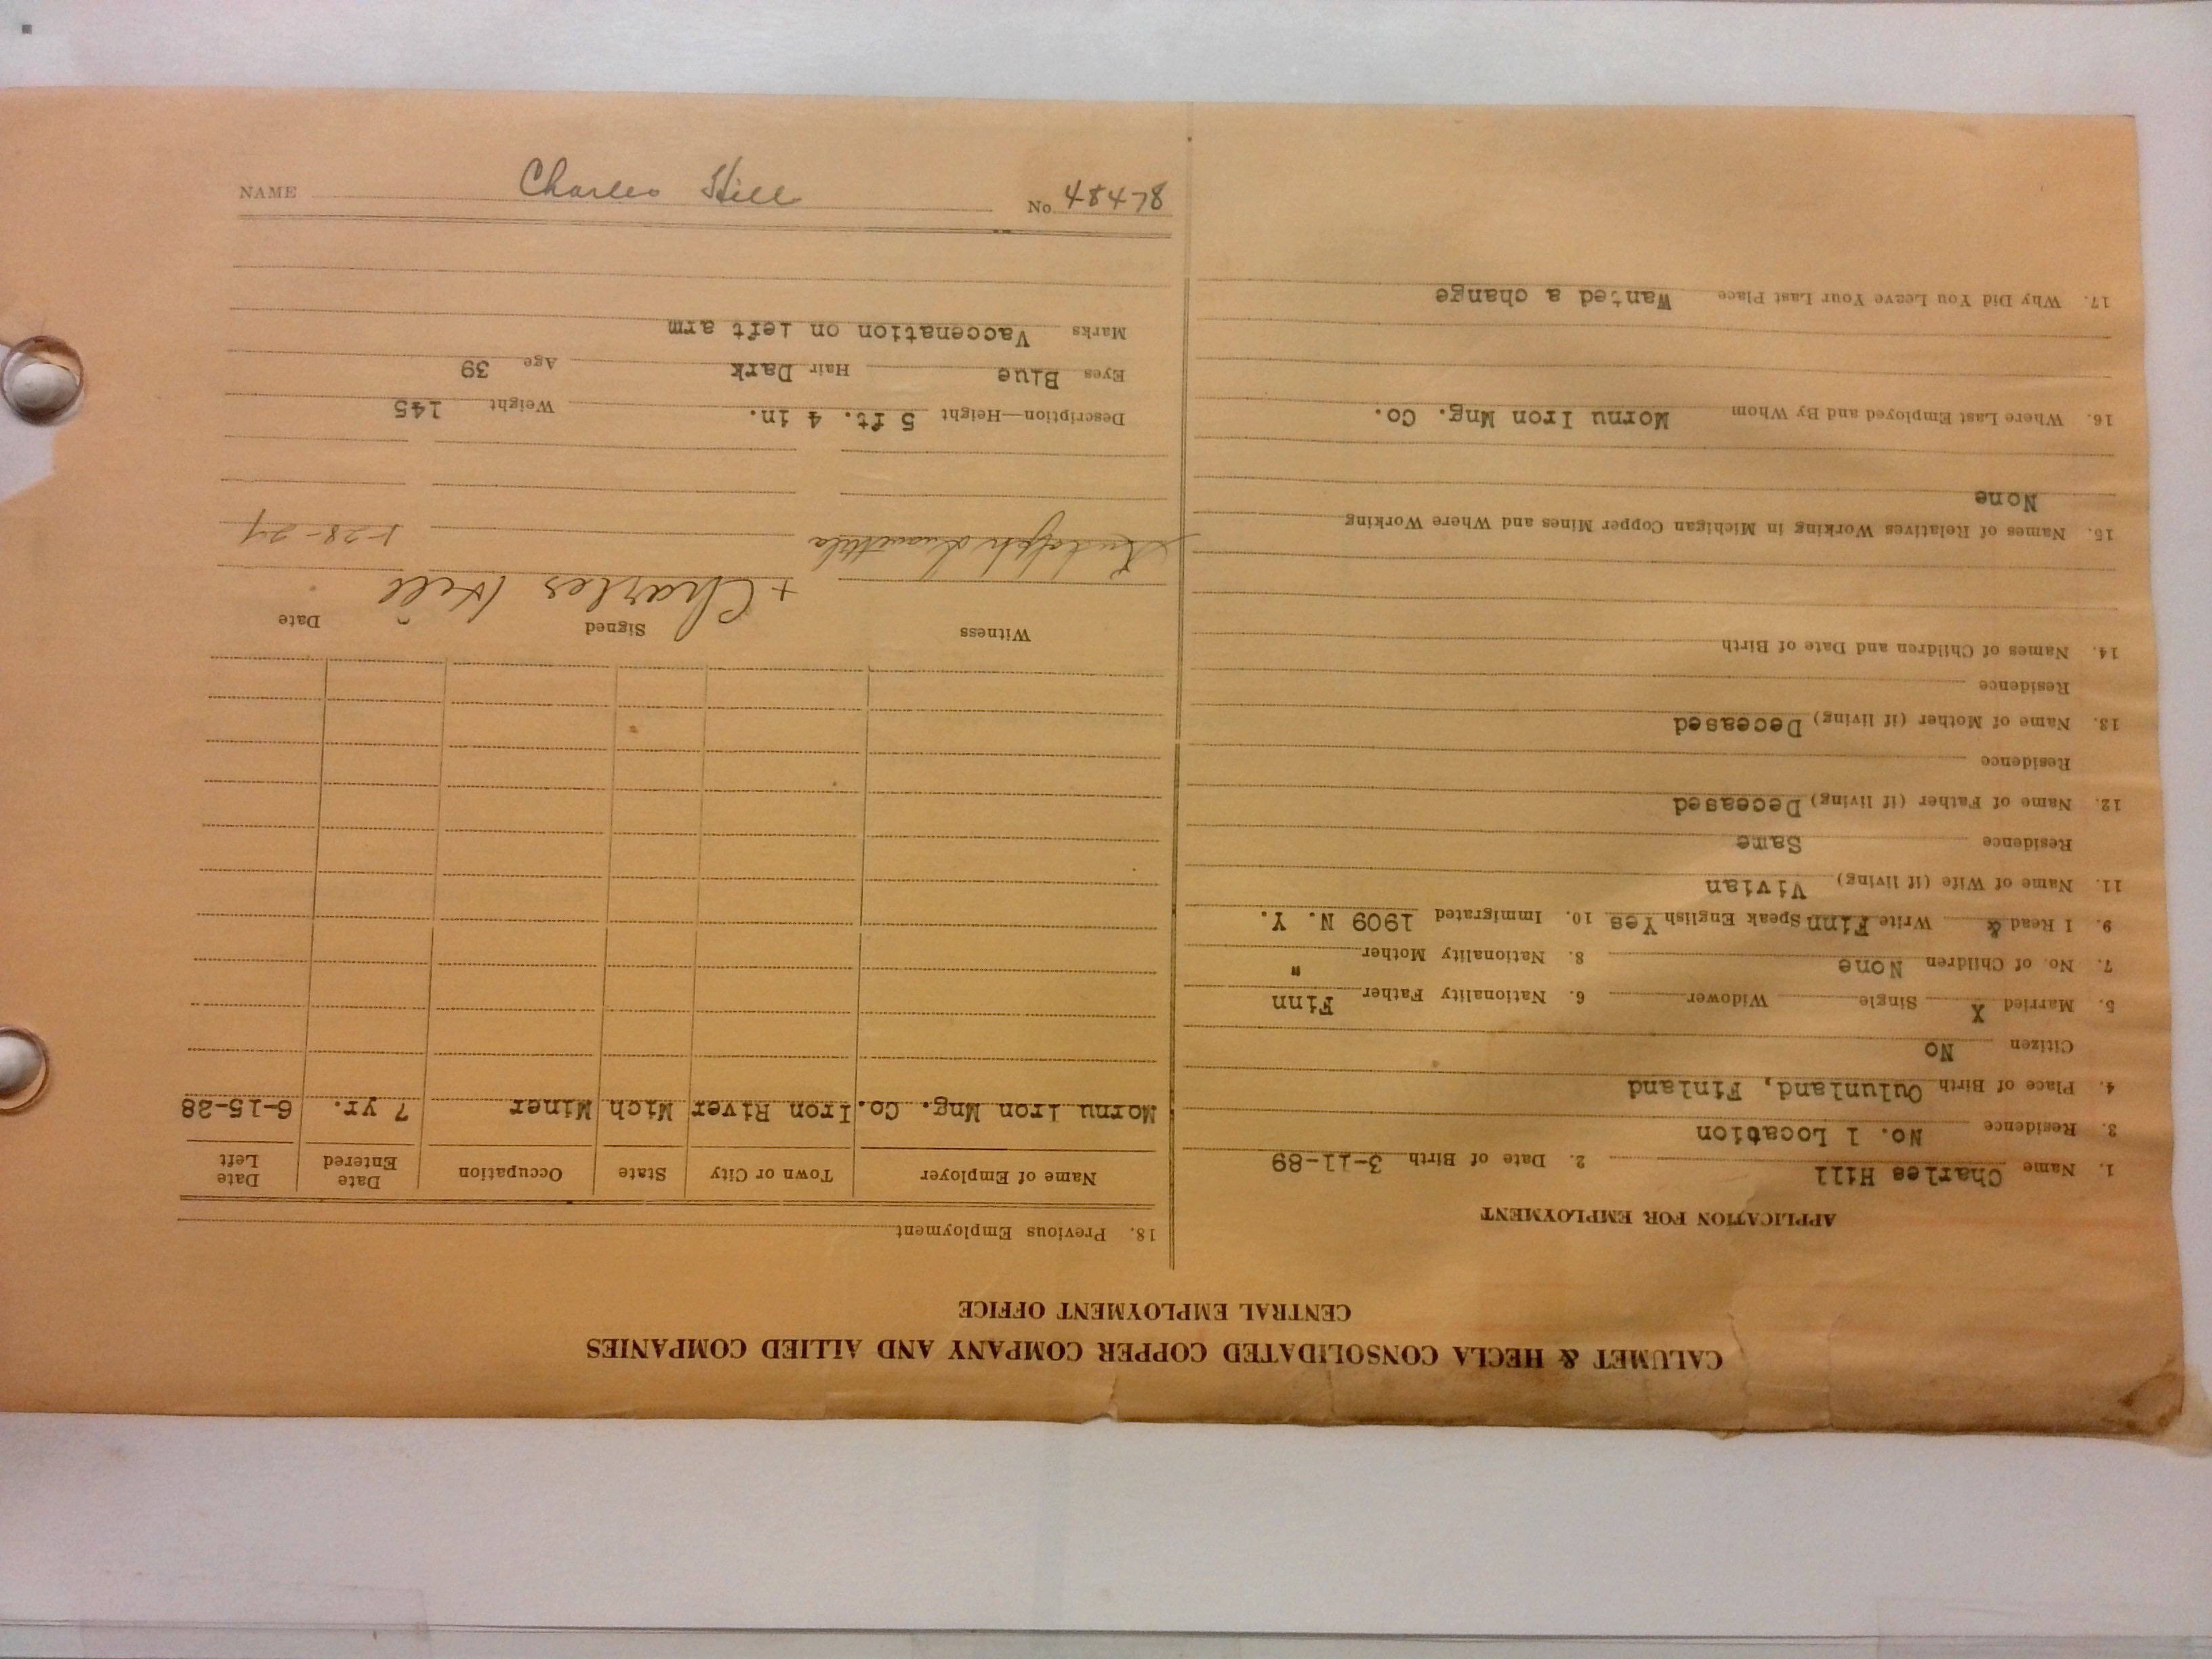 NAME Charles Hill No. 48478
CALUMET & HECLA CONSOLIDATED COPPER COMPANY AND ALLIED COMPANIES
CENTRAL EMPLOYMENT OFFICE
APPLICATION FOR EMPLOYMENT
1. Name Charles Hill 2. Date of Birth 3-11-89
3. Residence No. 1 Location
4. Place of Birth Oulunland, Finland
Citizen No
5. Married X Single Widower 6. Nationality Father Finn
7. No. of Children None 8. Nationality Mother "
9. I Read & Write Finn Speak English Yes 10. Immigrated 1909 N. Y.
11. Name of Wife (if living) Vivian
Residence Same
12. Name of Father (if living) Deceased
Residence
13. Name of Mother (if living) Deceased
Residence
14. Names of Children and Date of Birth
15. Names of Relatives Working in Michigan Copper Mines and Where Working
None
16. Where Last Employed and By Whom Mornu Iron Mng. Co.
17. Why Did You Leave Your Last Place Wanted a change
18. Previous Employment
Name of Employer Town or City State Occupation Date Entered Date Left
Mornu Iron Mng. Co. Iron River Mich Miner 7 yr. 6-15-28
Witness Signed Date
+ Charles Hill
Description—Height 5 ft. 4 in. Weight 145
Eyes Blue Hair Dark Age 39
Marks Vaccenation on left arm